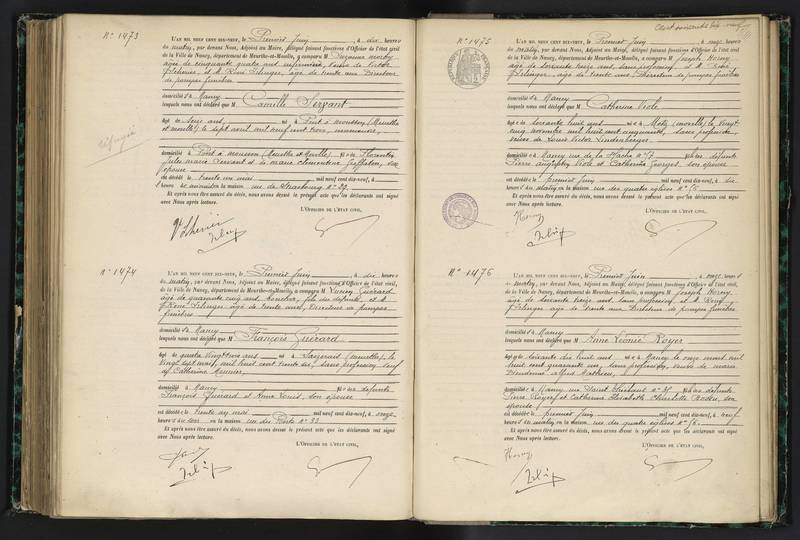 N° 1473
L'AN MIL NEUF CENT DIX-NEUF, le Premier Juin, à dix heures
du matin, par devant Nous, Adjoint au Maire, délégué faisant fonctions d'Officier de l'état civil
de la Ville de Nancy, département de Meurthe-et-Moselle, a comparu M
âgée de cinquante quatre ans, infirmière, veuve de Victor
et M René âgé de trente ans Directeur
de pompes funèbres
domicilié à Nancy
lesquels nous ont déclaré que M Camille Sergant
âgé de seize ans, né à Pont à Mousson (Meurthe
et Moselle) le sept avril mil neuf cent trois, manoeuvre,
réfugié
domicilié à Pont à Mousson (Meurthe et Moselle) fils de Florentin
Jules Marie Sergant et de Marie Clémentine son
épouse
est décédé le trente un mai mil neuf cent dix-neuf, à
heures minutes en la maison rue de Strasbourg N° 29
Et après nous être assuré du décès, nous avons dressé le présent acte que les déclarants ont signé
avec Nous après lecture.
L'OFFICIER DE L'ÉTAT CIVIL,
N° 1474
L'AN MIL NEUF CENT DIX-NEUF, le Premier Juin, à dix heures
du matin, par devant Nous, Adjoint au Maire, délégué faisant fonctions d'Officier de l'état civil,
de la Ville de Nancy, département de Meurthe-et-Moselle, a comparu M Guérard
âgé de quarante cinq ans, fils du défunt, et M
René âgé de trente ans, Directeur de pompes
funèbres
domicilié à Nancy
lesquels nous ont déclaré que M François Guérard
âgé de quatre vingt trois ans né à Saizerais (Meurthe) le
vingt sept mil huit cent trente six, sans profession, veuf
de Catherine Meunier,
domicilié à Nancy fils de défunts
François Guérard et Anne son épouse
est décédé le trente un mai mil neuf cent dix-neuf, à onze
heures du soir en la maison rue des N° 33
Et après nous être assuré du décès, nous avons dressé le présent acte que les déclarants ont signé
avec Nous après lecture.
L'OFFICIER DE L'ÉTAT CIVIL,
N° 1475
L'AN MIL NEUF CENT DIX-NEUF, le Premier Juin, à onze heures
du matin, par devant Nous, Adjoint au Maire, délégué faisant fonctions d'Officier de l'état civil
de la Ville de Nancy, département de Meurthe-et-Moselle, a comparu M Joseph
âgé de soixante treize ans, sans profession, et M René
âgé de trente ans, Directeur de pompes funèbres
domicilié à Nancy
lesquels nous ont déclaré que M Catherine Viole
âgé de soixante huit ans né à Metz (Moselle) le vingt
cinq novembre mil huit cent cinquante, sans profession,
veuve de Louis Victor
domiciliée à Nancy rue de la Hache N° 57 fille de défunts
Pierre Augustin Viole et Catherine Georges, son épouse
est décédé le premier juin mil neuf cent dix-neuf, à dix
heures du matin en la maison rue des quatre églises N° 5
Et après nous être assuré du décès, nous avons dressé le présent acte que les déclarants ont signé
avec Nous après lecture.
L'OFFICIER DE L'ÉTAT CIVIL,
N° 1476
L'AN MIL NEUF CENT DIX-NEUF, le Premier Juin, à onze heures
du matin, par devant Nous, Adjoint au Maire, délégué faisant fonctions d'Officier de l'état civil
de la Ville de Nancy, département de Meurthe-et-Moselle, a comparu M Joseph
âgé de soixante treize ans, sans profession, et M René
âgé de trente ans Directeur de pompes funèbres
domicilié à Nancy
lesquels nous ont déclaré que M Anne Léonie Royer
âgé de soixante dix huit ans né à Nancy le onze mil
huit cent quarante un, sans profession, veuve de Marie
Alfred Mathieu,
domiciliée à Nancy, rue Saint N° 35 fille de défunts
Pierre Royer et Catherine Elisabeth Charlotte son
épouse
est décédé le premier juin mil neuf cent dix-neuf, à neuf
heures du matin en la maison rue des quatre églises N°
Et après nous être assuré du décès, nous avons dressé le présent acte que les déclarants ont signé
avec Nous après lecture.
L'OFFICIER DE L'ÉTAT CIVIL,